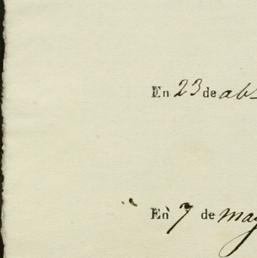 En 23 de ab
En 7 de may